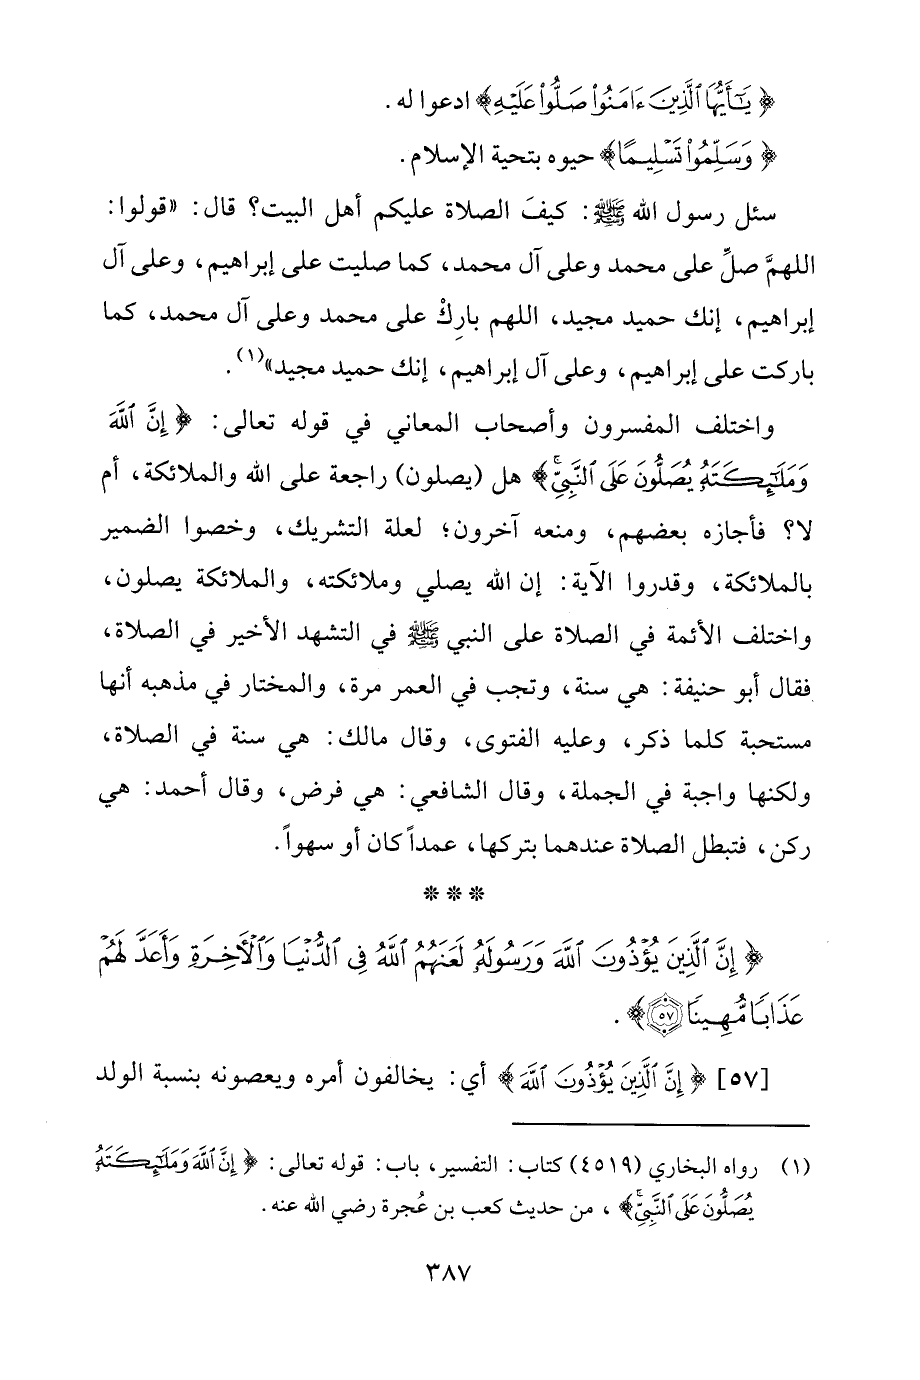 ﴿ يَٰٓأَيُّهَا ٱلَّذِينَ ءَامَنُوا۟ صَلُّوا۟ عَلَيْهِ﴾ ادعوا له .
﴿ وَسَلِّمُوا۟ تَسْلِيمًا﴾ حيوه بتحية الإسلام.
سئل رسول الله ﷺ: كيفَ الصلاة عليكم أهل البيت؟ قال: «قولوا:
اللهمَّ صلِّ على محمد وعلى آل محمد، كما صليت على إبراهيم، وعلى آل
إبراهيم، إنك حميد مجيد، اللهم بارِكْ على محمد وعلى آل محمد، كما
باركت على إبراهيم، وعلى آل إبراهيم، إنك حميد مجيد»(١).
واختلف المفسرون وأصحاب المعاني في قوله تعالى: ﴿ إِنَّ ٱللَّهَ
وَمَلَٰٓئِكَتَهُۥ يُصَلُّونَ عَلَى ٱلنَّبِىِّ ۚ﴾ هل (يصلون) راجعة على الله والملائكة، أم
لا؟ فأجازه بعضهم، ومنعه آخرون؛ لعلة التشريك، وخصوا الضمير
بالملائكة، وقدروا الآية: إن الله يصلي وملائكته، والملائكة يصلون،
واختلف الأئمة في الصلاة على النبي ﷺ في التشهد الأخير في الصلاة،
فقال أبو حنيفة: هي سنة، وتجب في العمر مرة، والمختار في مذهبه أنها
مستحبة كلما ذكر، وعليه الفتوى، وقال مالك: هي سنة في الصلاة،
ولكنها واجبة في الجملة، وقال الشافعي: هي فرض، وقال أحمد: هي
ركن، فتبطل الصلاة عندهما بتركها، عمداً كان أو سهواً.
***
﴿ إِنَّ ٱلَّذِينَ يُؤْذُونَ ٱللَّهَ وَرَسُولَهُۥ لَعَنَهُمُ ٱللَّهُ فِى ٱلدُّنْيَا وَٱلْأَخِرَةِ وَأَعَدَّ لَهُمْ
عَذَابًا مُّهِينًا ٥٧﴾ .
[٥٧] ﴿ إِنَّ ٱلَّذِينَ يُؤْذُونَ ٱللَّهَ ﴾ أي: يخالفون أمره ويعصونه بنسبة الولد
(١) رواه البخاري (٤٥١٩) كتاب: التفسير، باب: قوله تعالى: ﴿ إِنَّ ٱللَّهَ وَمَلَٰٓئِكَتَهُۥ
يُصَلُّونَ عَلَى ٱلنَّبِىِّ ۚ﴾ ، من حديث كعب بن عُجرة رضي الله عنه.
٣٨٧